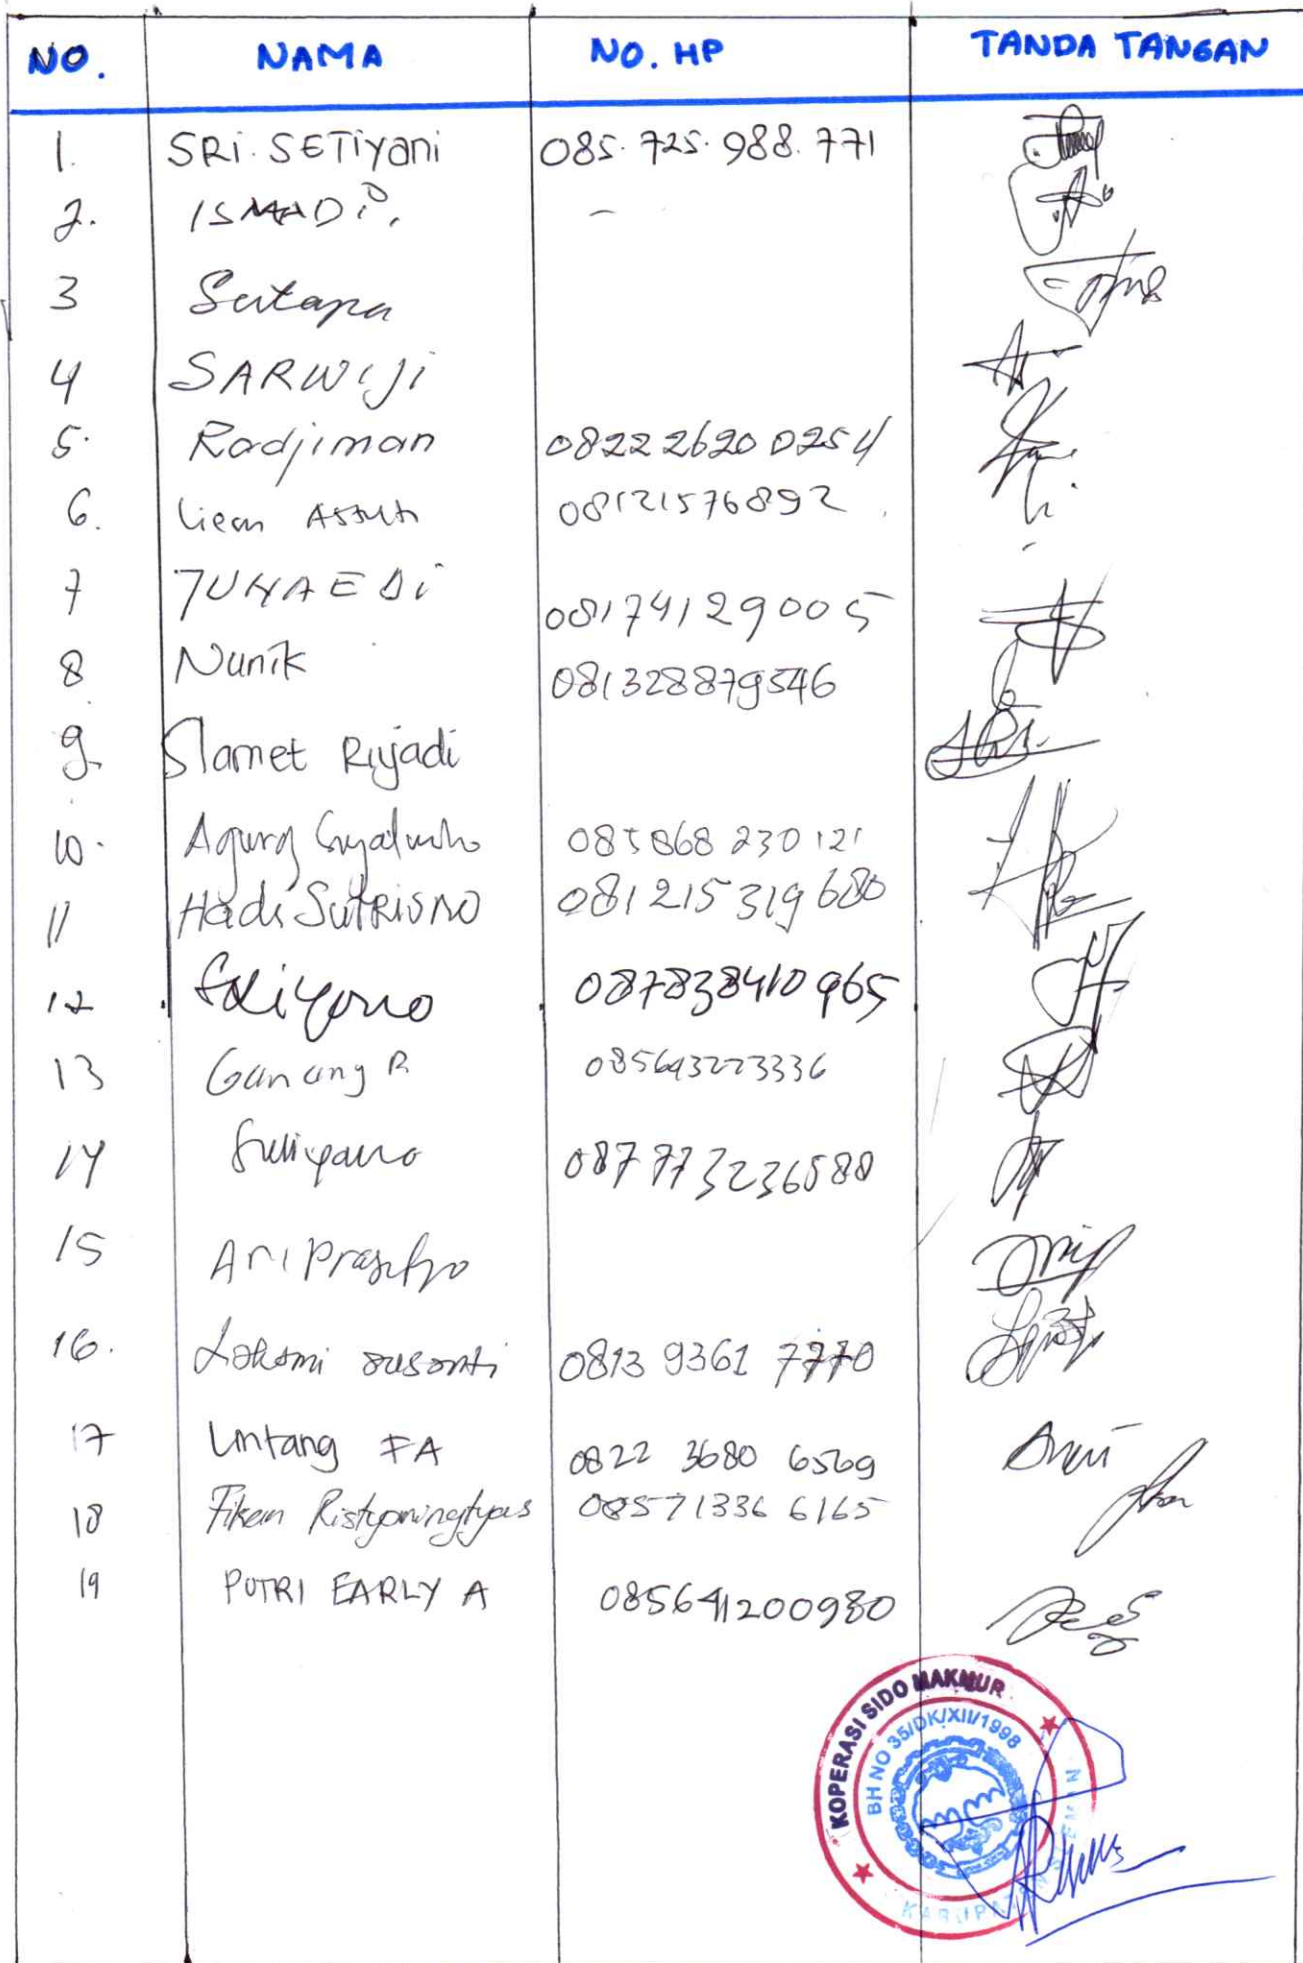 NO. NAMA NO. HP TANDA TANGAN
1. SRi. SETiyani 085. 725. 988. 771
2. ISMADi. -
3 Sutapa
4 SARWIJi
5. Radjiman 08222620 0254
6. 08121576892
7 JUNAEDi 08174129005
8 Nunik 081328879546
9. Slamet Riyadi
10. Agung 085868 230 121
11 Hadi SUTRISNO 081215 319 680
12 087838410965
13 Ganang R 085643223336
14 Suliyano 087773236588
15 Ari Prasetyo
16. Laksmi susanti 0813 9361 7770
17 Lintang FA 0822 3680 6569
18 Fikan Ristyaningtyas 08571336 6165
19 PUTRI EARLY A 085641200980
KOPERASI SIDO MAKMUR
BH NO 35/DK/XII/1998